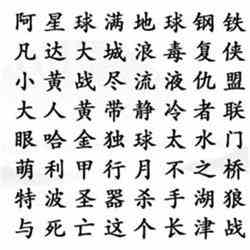 阿星球满地球钢铁
凡达大城浪毒复侠
小黄战尽流液仇盟
大人黄带静冷者联
眼哈金独球太水门
萌利甲行月不之桥
特波圣器杀手湖狼
与死亡这个长津战